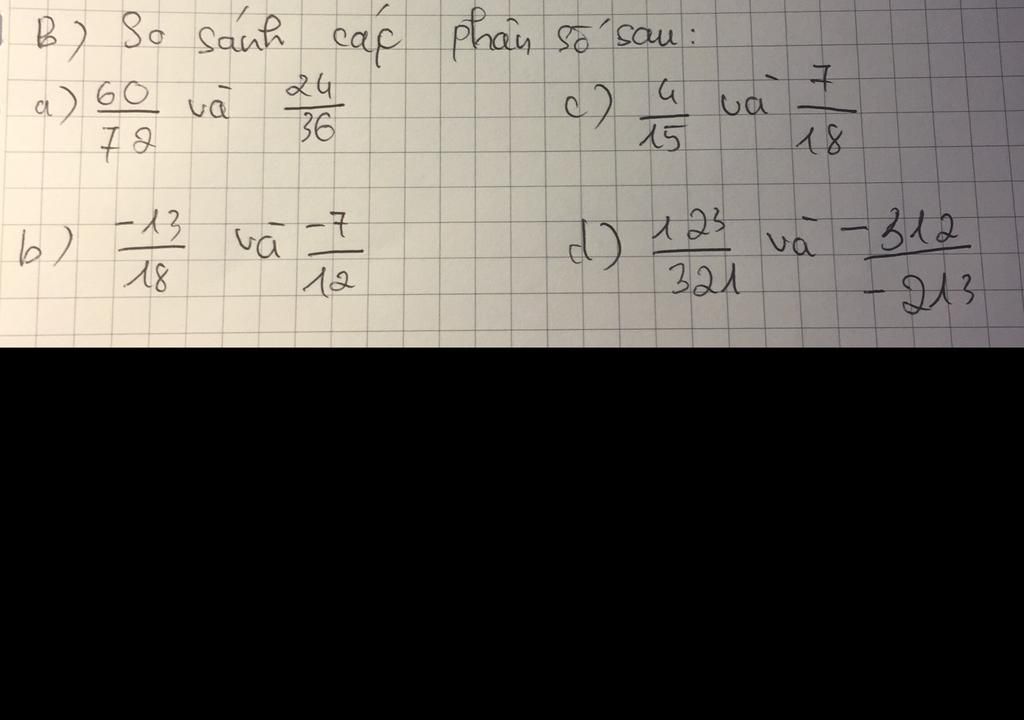 B) So sánh các phân số sau:
a) 60/72 và 24/36
c) 4/15 và 7/18
b) -13/18 và -7/12
d) 123/321 và -312/-213